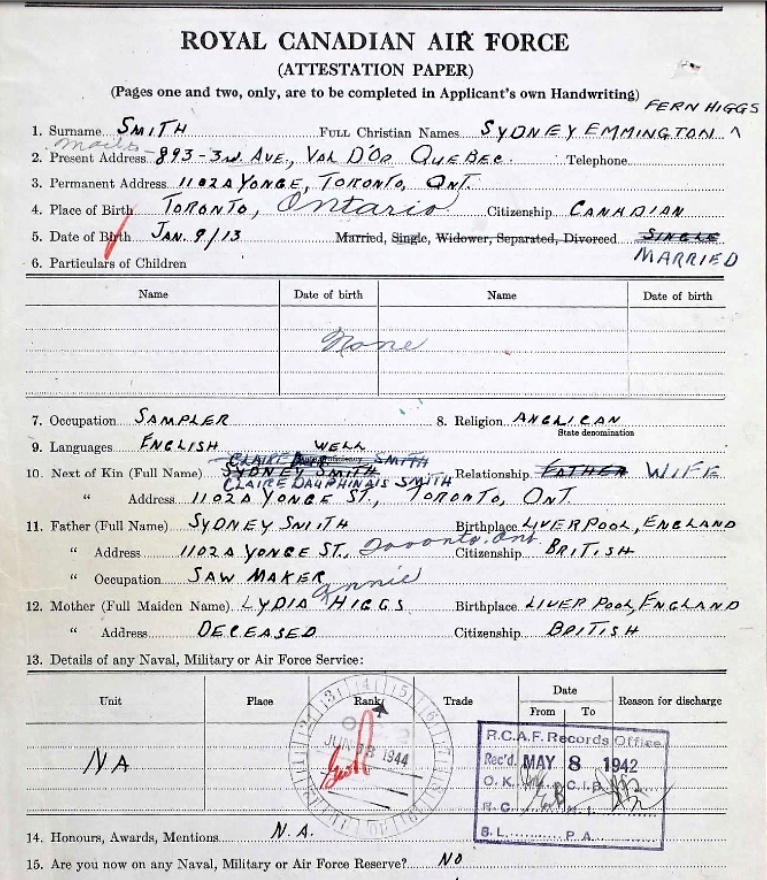 ROYAL CANADIAN AIR FORCE
(ATTESTATION PAPER)
(Pages one and two, only, are to be completed in Applicant's own Handwriting)
FERN HIGGS
1. Surname SMITH FULL Christian Names SYDNEY EMMINGTON ^
2. Present Address 893-3rd AVE., VAL D'OR QUEBEC. Telephone
3. Permanent Address 1102A YONGE, TORONTO, ONT.
4. Place of Birth TORONTO, Ontario Citizenship CANADIAN
5. Date of Birth JAN. 9/13 Married, Single, Widower, Separated, Divorced SINGLE
MARRIED
6. Particulars of Children
Name Date of birth Name Date of birth
None
7. Occupation SAMPLER 8. Religion ANGLICAN
State denomination
9. Languages ENGLISH WELL
CLAIRE SMITH
10. Next of Kin (Full Name) SYDNEY SMITH Relationship FATHER WIFE
CLAIRE DAUPHINAIS SMITH
" Address 1102A YONGE ST., TORONTO, ONT
11. Father (Full Name) SYDNEY SMITH Birthplace LIVERPOOL, ENGLAND
" Address 1102A YONGE ST., Toronto, Ont. Citizenship BRITISH
" Occupation SAW MAKER
annie
12. Mother (Full Maiden Name) LYDIA HIGGS Birthplace LIVERPOOL, ENGLAND
" Address DECEASED Citizenship BRITISH
13. Details of any Naval, Military or Air Force Service:
Unit Place Rank Trade Date Reason for discharge
From To
NA
JUN 13 1944
R.C.A.F. Records Office
Rec'd. MAY 8 1942
O.K. C.I.B.
R.C. H.I.
S.L. P.A.
14. Honours, Awards, Mentions N.A.
15. Are you now on any Naval, Military or Air Force Reserve? NO